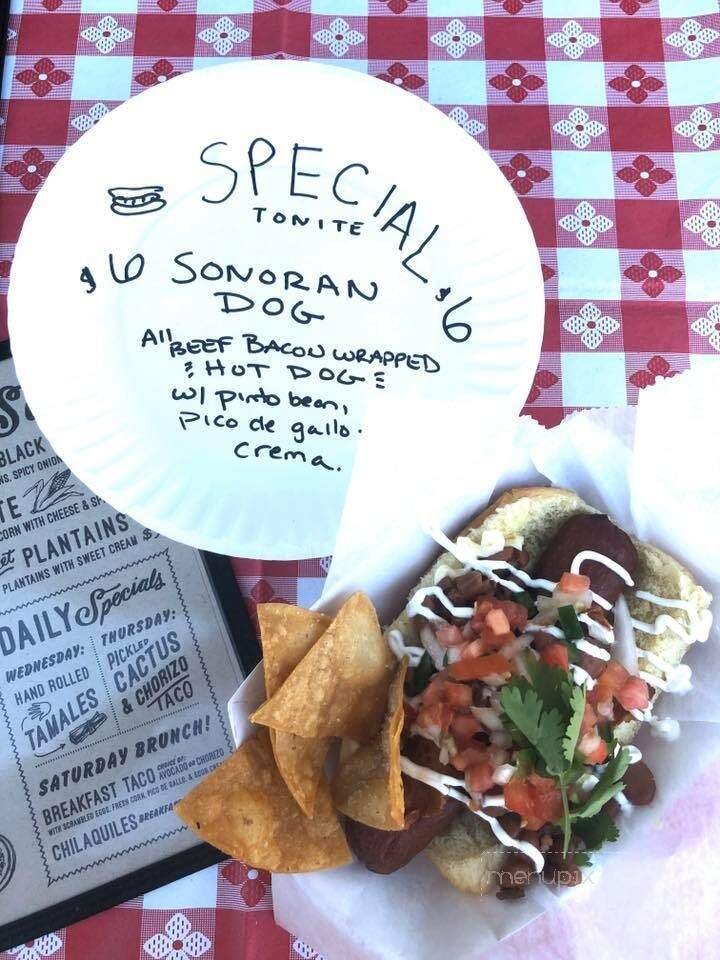 SPECIAL
TONITE
$6 $6
SONORAN
DOG
All BEEF BACON WRAPPED
HOT DOG
w/ pinto bean,
Pico de gallo.
crema.
BLACK
NS. SPICY ONION
CORN WITH CHEESE &
PLANTAINS
PLANTAINS WITH SWEET CREAM $
DAILY Specials
WEDNESDAY:
HAND ROLLED
TAMALES
THURSDAY:
PICKLED
CACTUS
& CHORIZO
TACO
SATURDAY BRUNCH!
BREAKFAST TACO CHOICE OF: AVOCADO OR CHORIZO
WITH SCRAMBLED EGGS, FRESH CORN, PICO DE GALLO, & SOUR
CHILAQUILES
menupix